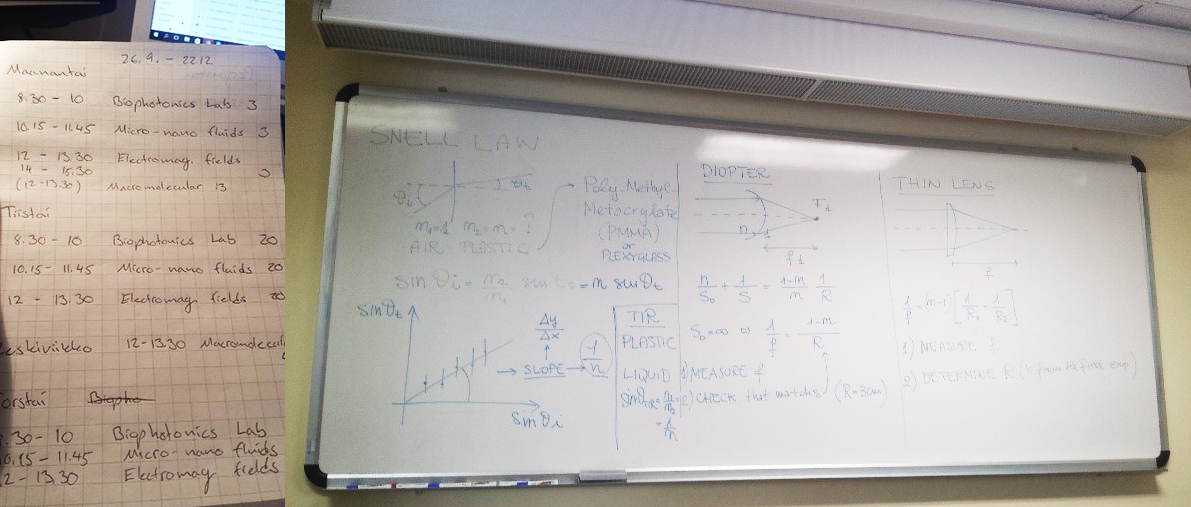 26.9. - 22.12
Maanantai
8.30 - 10 Biophotonics Lab 3
10.15 - 11.45 Micro-nano fluids 3
12 - 13.30 Electromag. fields
14 - 15.30
(12-13.30) Macromolecular 13
Tiistai
8.30 - 10 Biophotonics Lab 20
10.15 - 11.45 Micro-nano fluids 20
12 - 13.30 Electromag. fields 20
eskiviikko 12-13.30 Macromolecul
orstai Biopho
.30 - 10 Biophotonics Lab
0.15 - 11.45 Micro-nano fluids
2 - 13.30 Electromag fields
SNELL LAW
θi θt
n₁=1 n₂=n=?
AIR PLASTIC
Poly-Methyl-
Metacrylate
(PMMA)
or
PLEXYGLASS
sin θi = n₂/n₁ sin θt = n sin θt
sin θt
sin θi
Δy/Δx
→ SLOPE → 1/n
TIR
PLASTIC
LIQUID
sin θTIR = n₁/n₂ =
= 1/n
DIOPTER
F₁
n 1
f₁
n/S₀ + 1/S = 1-n/n 1/R
S₀=∞ 1/f = 1-n/R
1) MEASURE f
2) CHECK that matches (R=3cm)
THIN LENS
f
1/f = (n-1) [1/R₁ - 1/R₂]
1) MEASURE f
2) DETERMINE R (n from the first exp.)